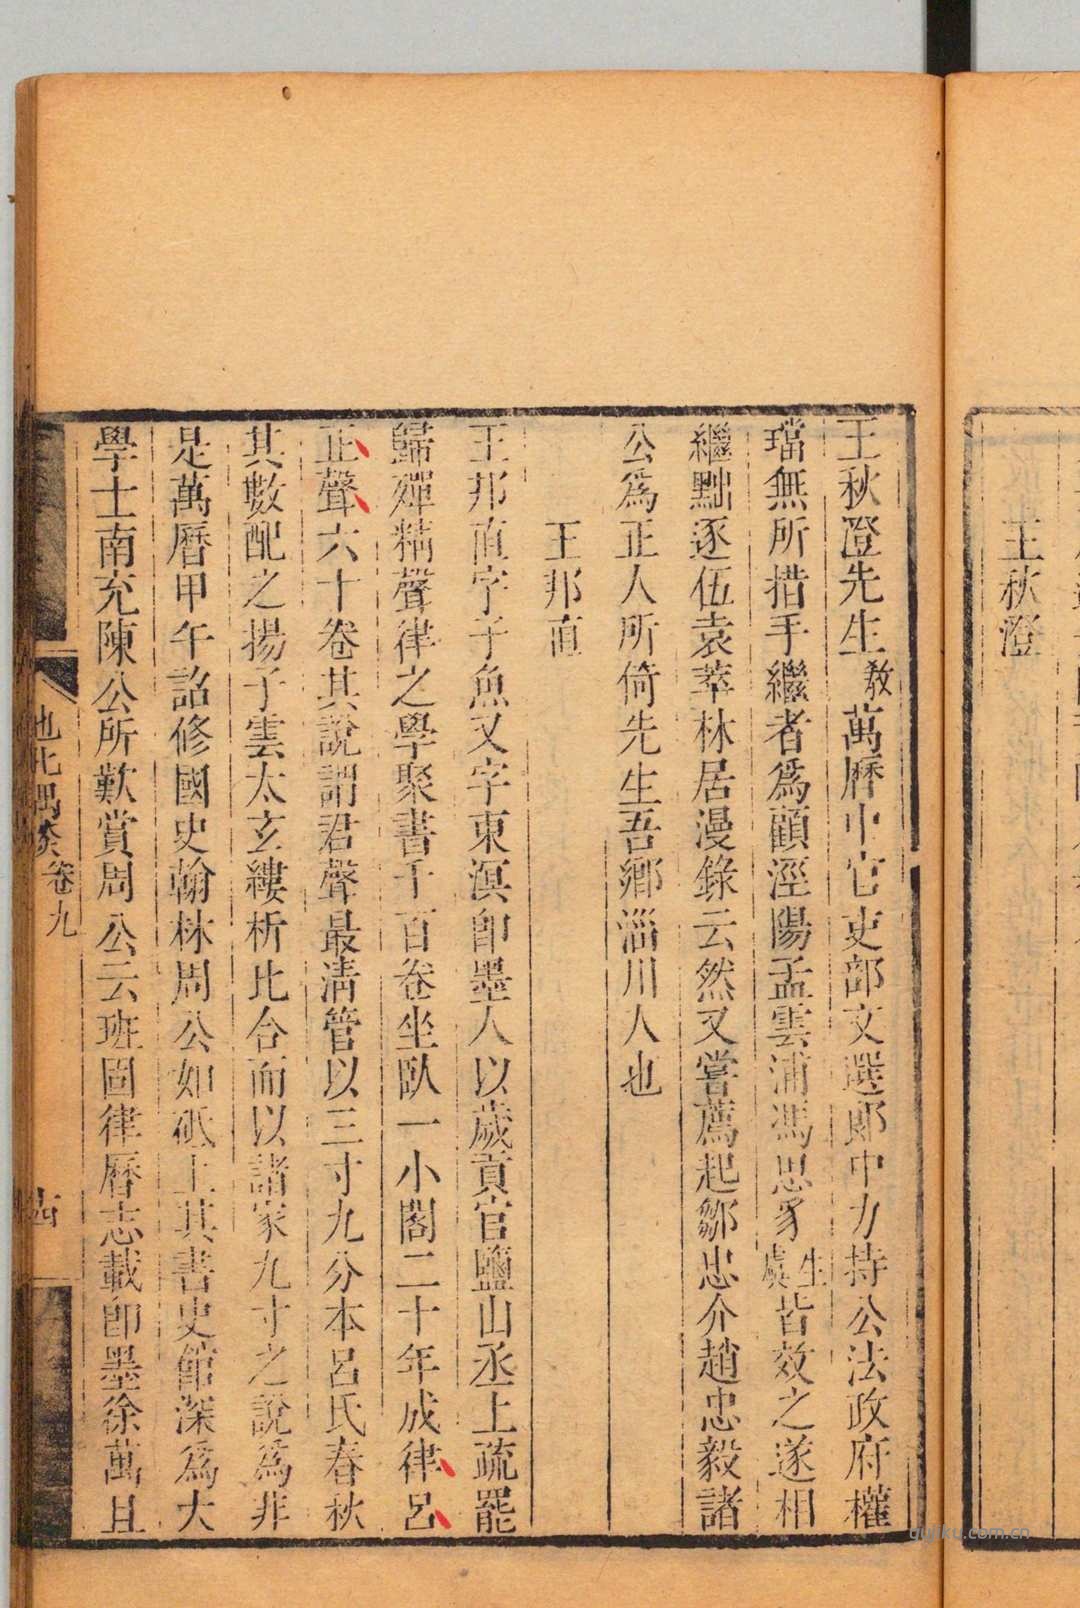 王秋澄
王秋澄先生教萬曆中官吏部文選郎中力持公法政府權
璫無所措手繼者為顧涇陽孟雲浦馮思豸生虞皆效之遂相
繼黜逐伍袁萃林居漫錄云然又嘗薦起鄒忠介趙忠毅諸
公為正人所倚先生吾鄉淄川人也
王邦直
王邦直字子魚又字東溟卽墨人以歲貢官鹽山丞上疏罷
歸殫精聲律之學聚書千百卷坐臥一小閣二十年成律呂
正聲六十卷其說謂君聲最清管以三寸九分本呂氏春秋
其數配之揚子雲太玄縷析比合而以諸家九寸之說為非
是萬曆甲午詔修國史翰林周公如砥上其書史館深為大
學士南充陳公所歎賞周公云班固律曆志載卽墨徐萬且
池北偶談卷九
古
qiyiku.com.cn